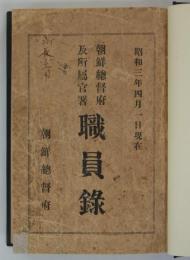 昭和三年四月一日現在
朝鮮總督府
及所屬官署
職員錄
朝鮮總督府